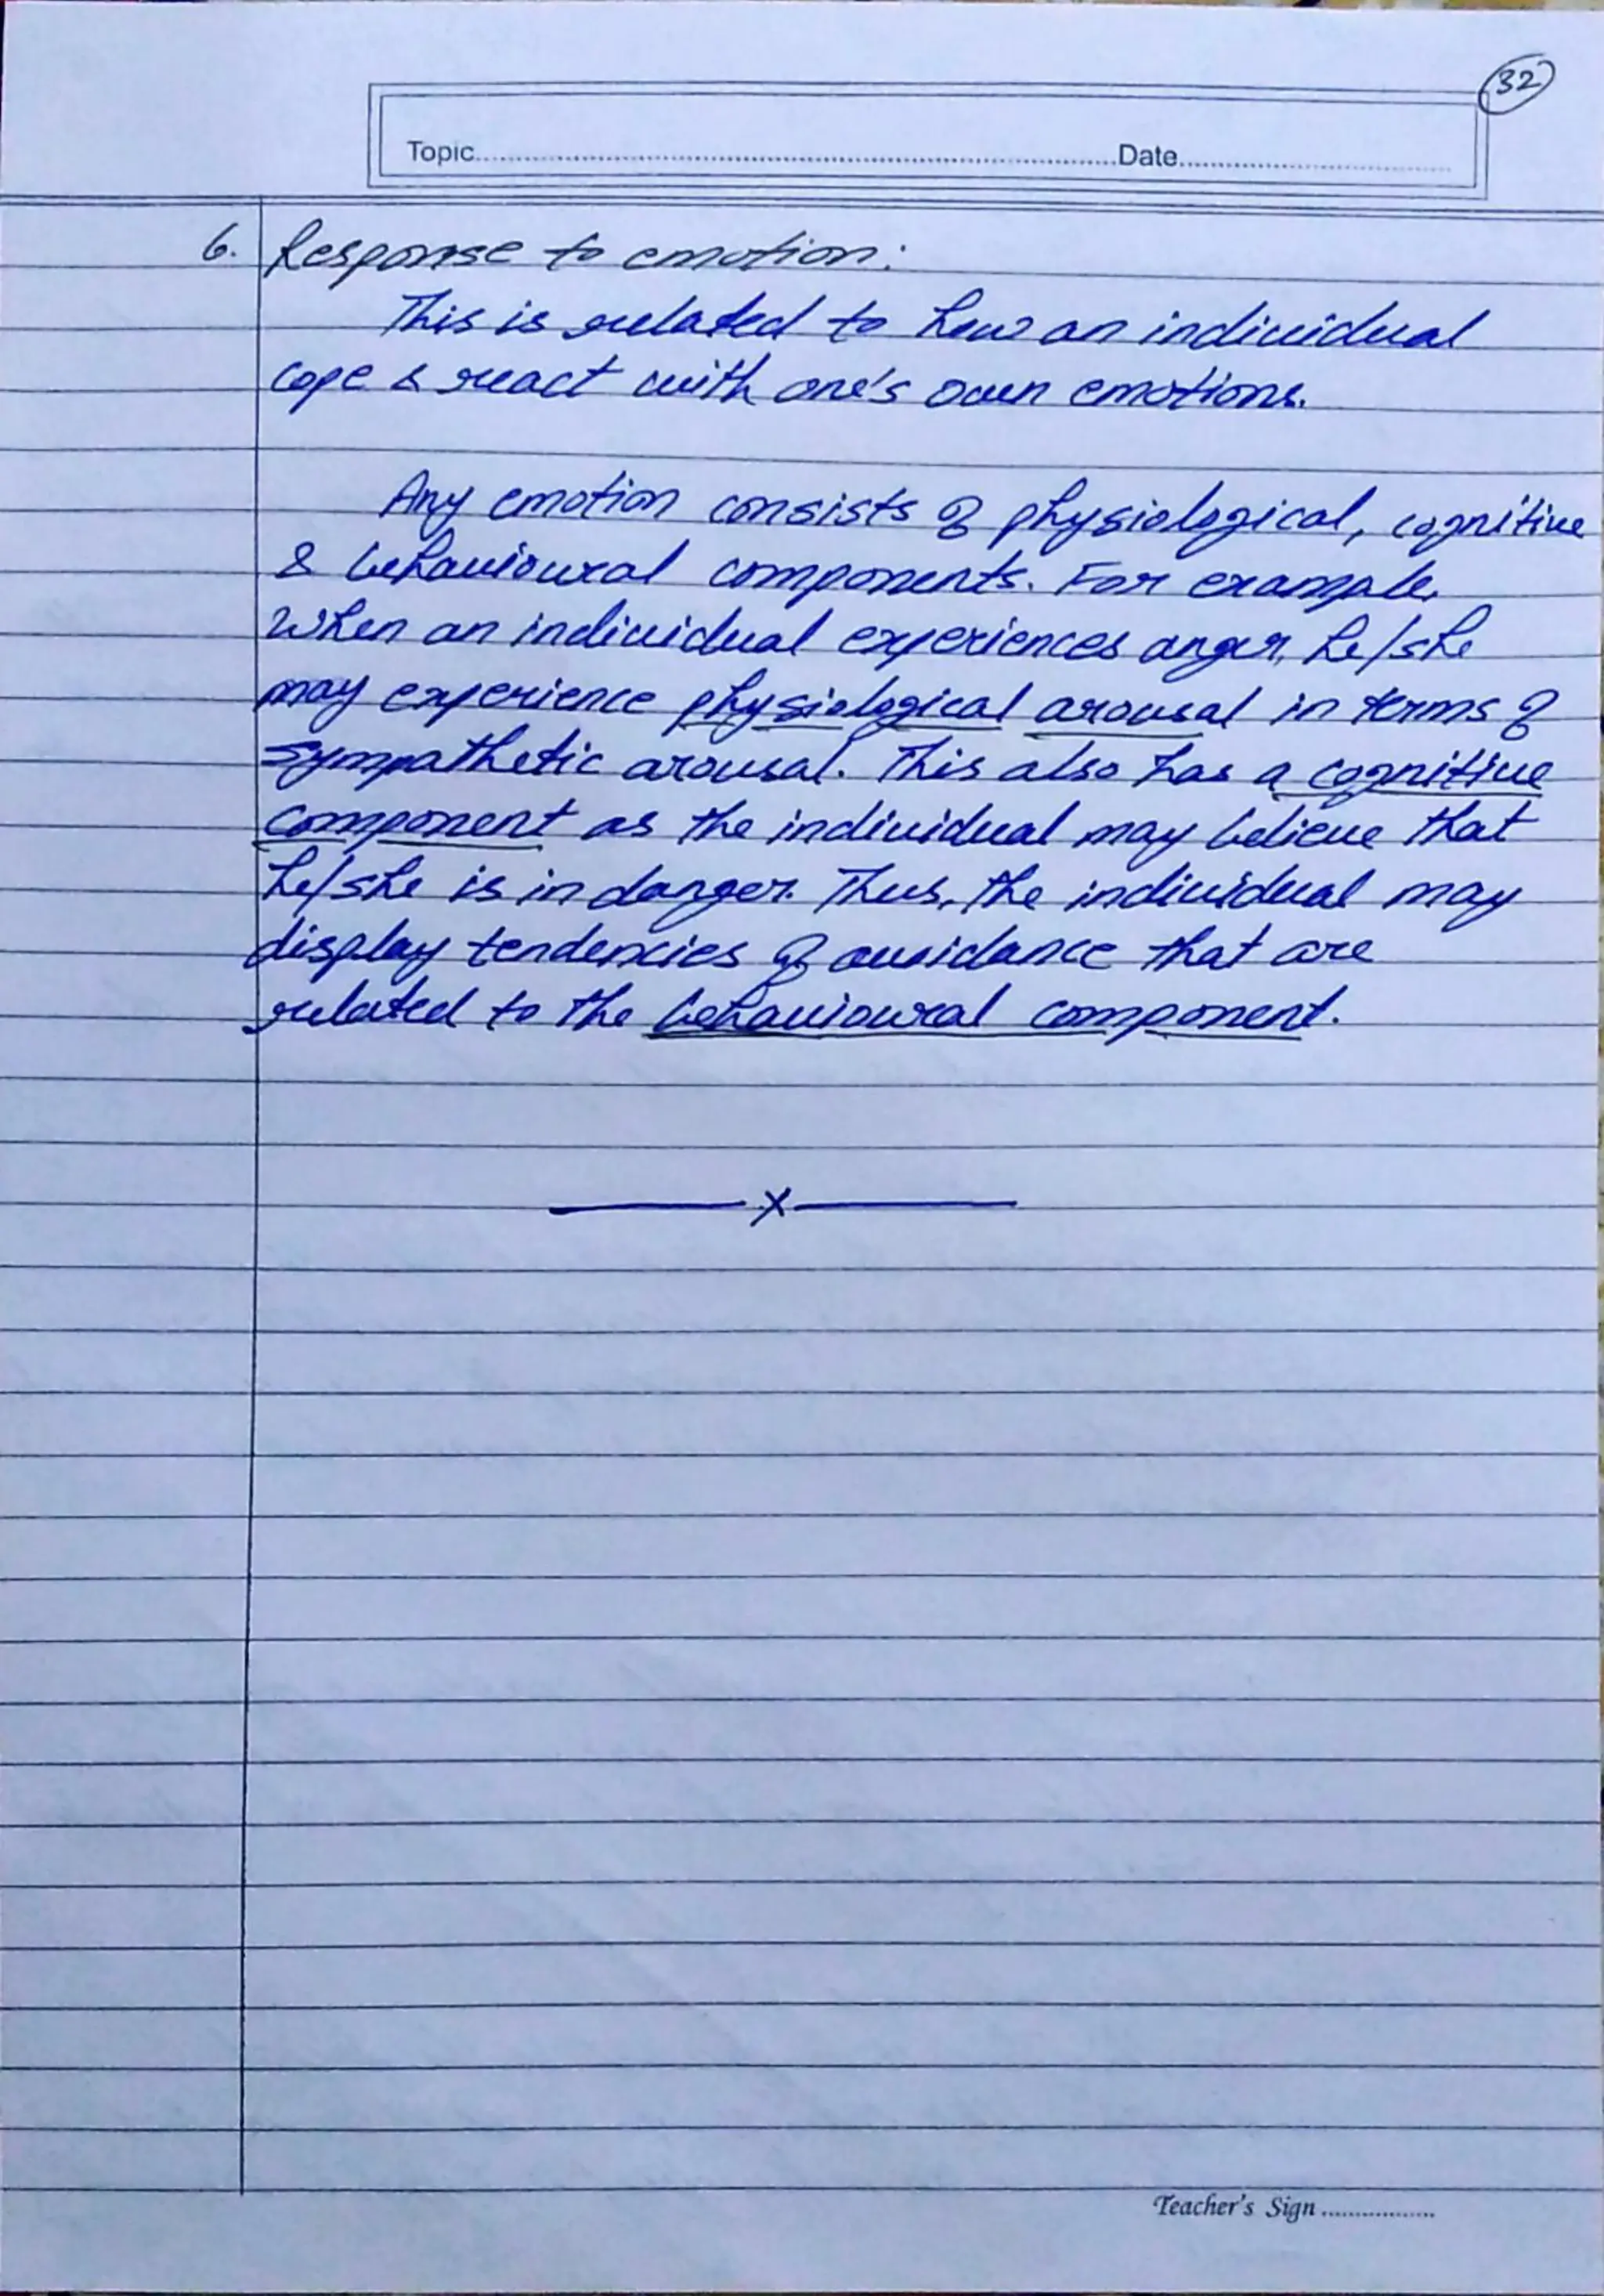 32
Topic..........Date..........
6. Response to emotion:
This is related to how an individual
cope & react with one's own emotions.
Any emotion consists of physiological, cognitive
& behavioural components. For example,
when an individual experiences anger, he/she
may experience physiological arousal in terms of
sympathetic arousal. This also has a cognitive
component as the individual may believe that
he/she is in danger. Thus, the individual may
display tendencies of avoidance that are
related to the behavioural component.
——x——
Teacher's Sign..........